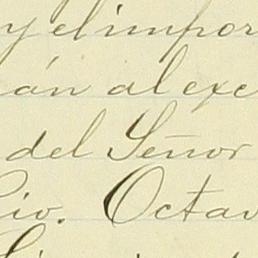 y el impor
án al exc
del Señor
Civ. Octav